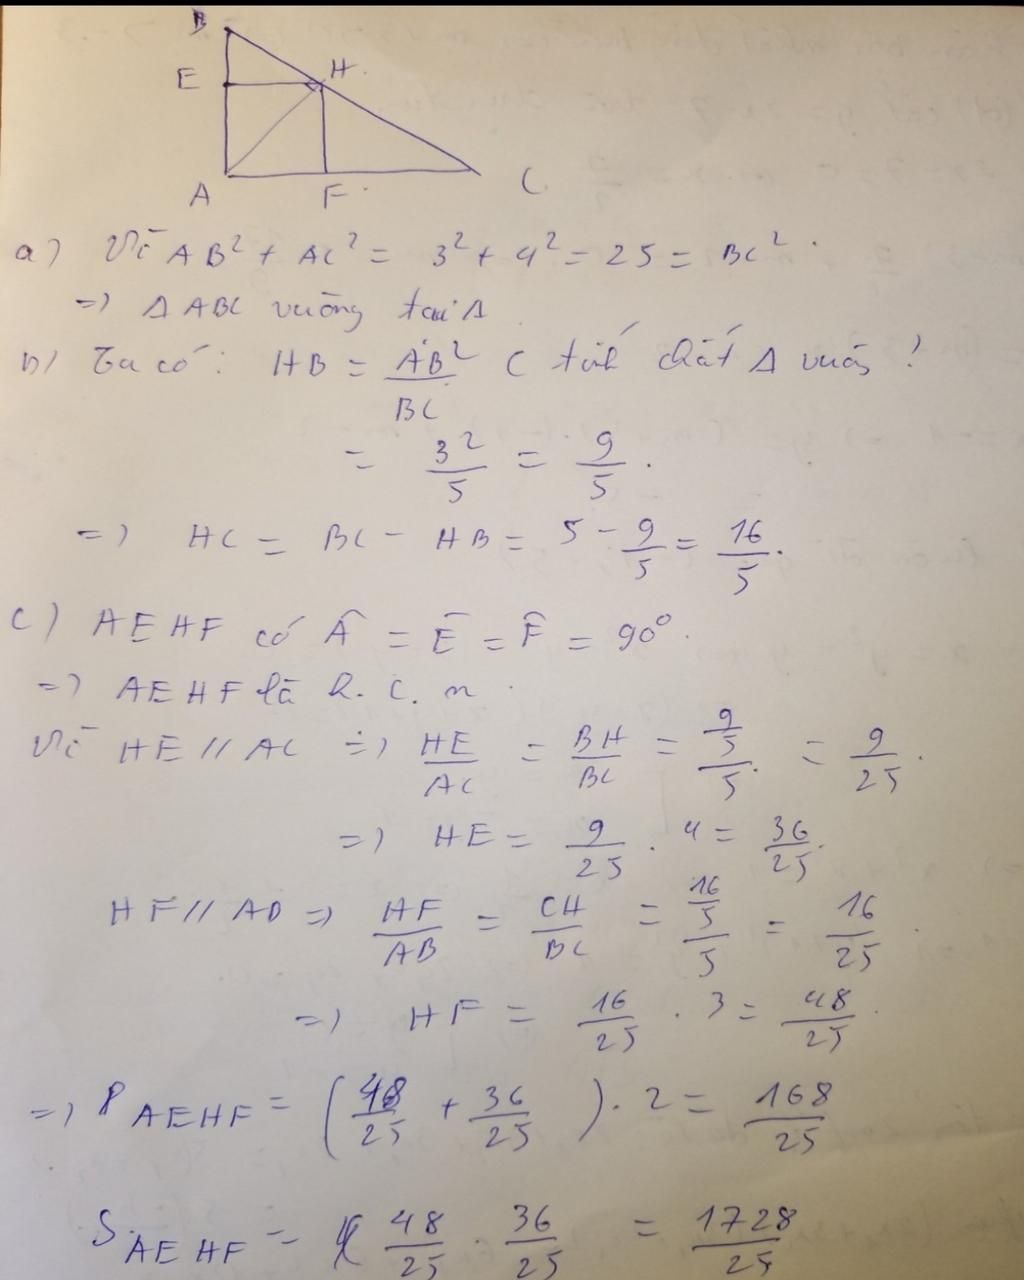 B
E H
A F C
a) Vì AB² + AC² = 3² + 4² = 25 = BC²
=> Δ ABC vuông tại A
b) Ta có: HB = AB²/BC ( tính chất Δ vuông )
= 3²/5 = 9/5.
=> HC = BC - HB = 5 - 9/5 = 16/5.
c) AEHF có Â = Ê = F̂ = 90°
=> AEHF là h.c.n
Vì HE // AC => HE/AC = BH/BC = 9/5/5 = 9/25.
=> HE = 9/25 . 4 = 36/25.
HF // AB => HF/AB = CH/BC = 16/5/5 = 16/25
=> HF = 16/25 . 3 = 48/25
=> P AEHF = (48/25 + 36/25) . 2 = 168/25
S AEHF = 48/25 . 36/25 = 1728/25